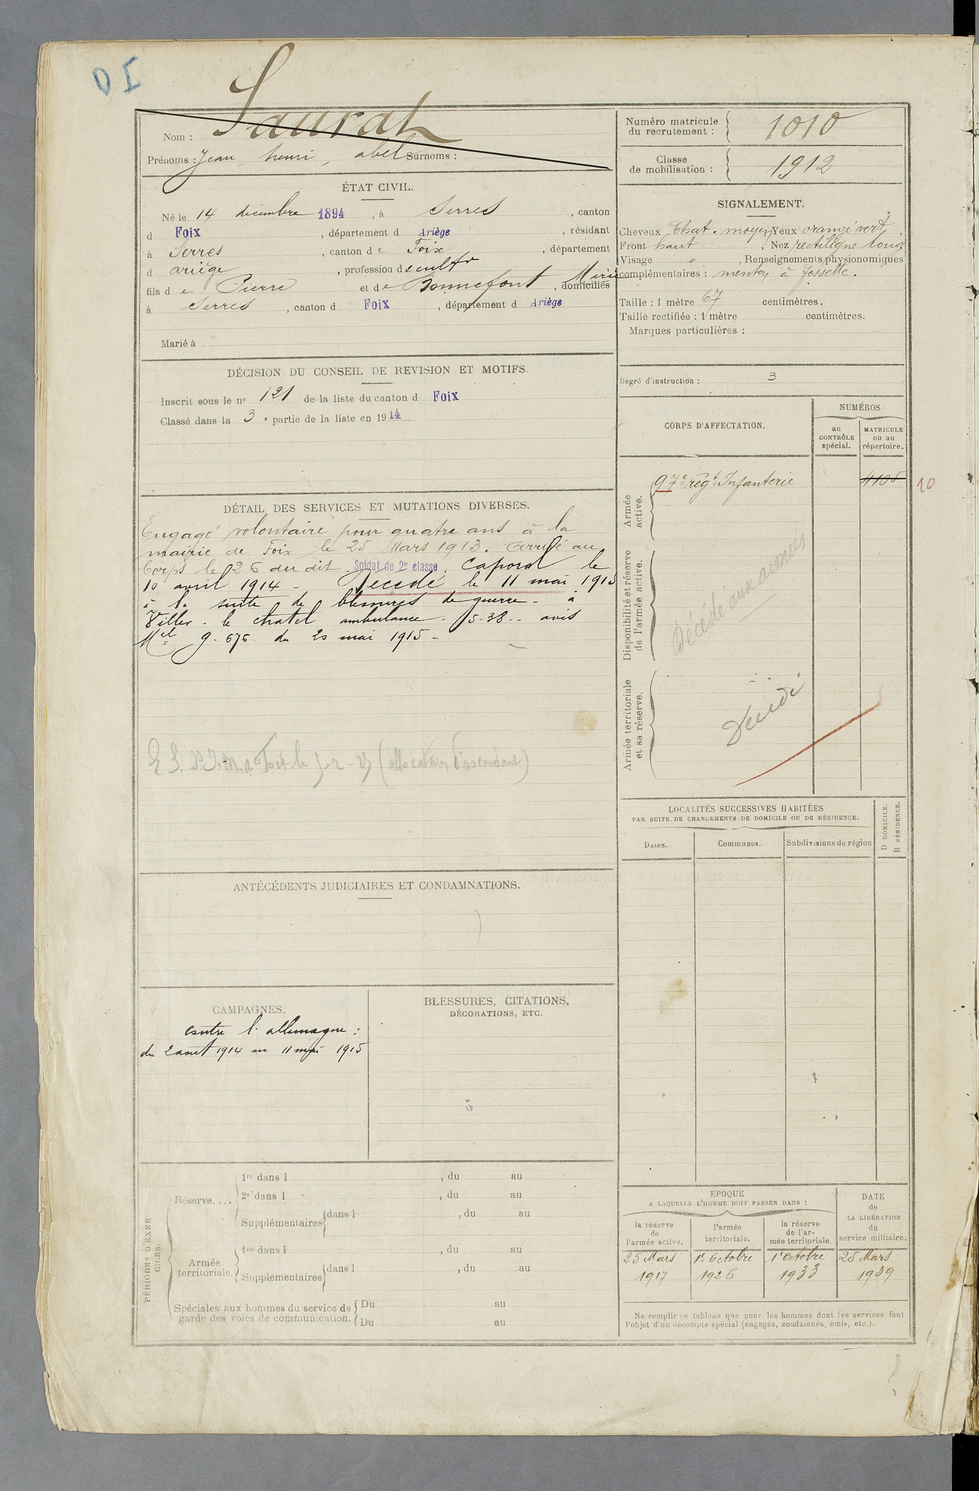 OI
Nom : Saurat
Prénoms : Jean, henri, abel Surnoms :
ÉTAT CIVIL.
Né le 14 décembre 1894, à Serres, canton
d Foix, département d Ariège, résidant
à Serres, canton d e Foix, département
d ariège, profession d e cultr
fils d e Pierre et d e Bonnefont Marie domiciliés
à Serres, canton d Foix, département d Ariège
Marié à
DÉCISION DU CONSEIL DE REVISION ET MOTIFS.
Inscrit sous le n° 121 de la liste du canton d Foix
Classé dans la 3e partie de la liste en 1914
DÉTAIL DES SERVICES ET MUTATIONS DIVERSES.
Engagé volontaire pour quatre ans à la
mairie de Foix le 25 Mars 1913. Arrivé au
Corps le 26 du dit. Soldat de 2e classe, Caporal le
10 avril 1914 - Décédé le 11 mai 1915
à la suite de blessures de guerre - à
Villers - le chatel ambulance - 5-38 - avis
Mel 9-676 du 20 mai 1915 -
(allocation d'ascendant)
ANTÉCÉDENTS JUDICIAIRES ET CONDAMNATIONS.
CAMPAGNES.
contre l'allemagne :
du 2 aout 1914 au 11 mai 1915
BLESSURES, CITATIONS,
DÉCORATIONS, ETC.
PÉRIODES D'EXERCICES.
Réserve....
1re dans l , du au
2e dans l , du au
Supplémentaires dans l , du au
Armée
territoriale.
1re dans l , du au
Supplémentaires dans l , du au
Spéciales aux hommes du service de
garde des voies de communication.
Du au
Du au
Numéro matricule
du recrutement : 1010
Classe
de mobilisation : 1912
SIGNALEMENT.
Cheveux Chat. moyen Yeux orangé vert,
Front haut, Nez rectiligne long
Visage ", Renseignements physionomiques
complémentaires : menton à fossette.
Taille : 1 mètre 67 centimètres.
Taille rectifiée : 1 mètre centimètres.
Marques particulières :
Degré d'instruction : 3
CORPS D'AFFECTATION.
NUMÉROS
au
CONTRÔLE
spécial.
MATRICULE
ou au
répertoire.
Armée
active.
97e régt Infanterie
4105
10
Disponibilité et réserve
de l'armée active.
Décédé aux armées
Armée territoriale
et sa réserve.
Décédé
LOCALITÉS SUCCESSIVES HABITÉES
PAR SUITE DE CHANGEMENTS DE DOMICILE OU DE RÉSIDENCE.
Dates.
Communes.
Subdivisions de région
D DOMICILE.
R RÉSIDENCE.
EPOQUE
A LAQUELLE L'HOMME DOIT PASSER DANS :
la réserve
de
l'armée active.
l'armée
territoriale.
la réserve
de l'ar-
mée territoriale.
DATE
de
LA LIBÉRATION
du
service militaire.
25 Mars
1917
1er Octobre
1926
1er octobre
1933
25 Mars
1939
Ne remplir ce tableau que pour les hommes dont les services font
l'objet d'un décompte spécial (engagés, condamnés, omis, etc.).